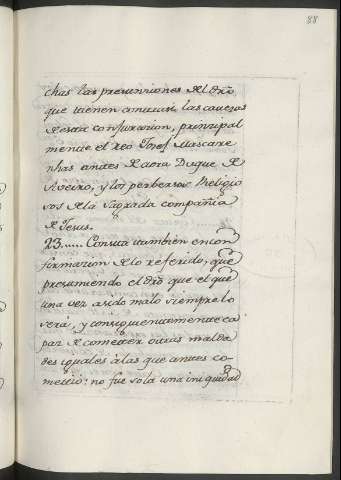 88
chas las presunciones del dro
que tienen contra si las cavezas
de esta conjuracion, principal
mente el reo Josef Mascare
nhas antes de aora Duque de
Aveiro, y los perbersos Religio
sos de la Sagrada compañia
de Jesus.
23..... Consta tambien en con
formacion de lo referido, que
presumiendo el dro que el que
una vez a sido malo siempre lo
será, y consiguientemente ca
paz de cometer otras malda
des iguales a las que antes co
metió: no fue sola una iniquidad